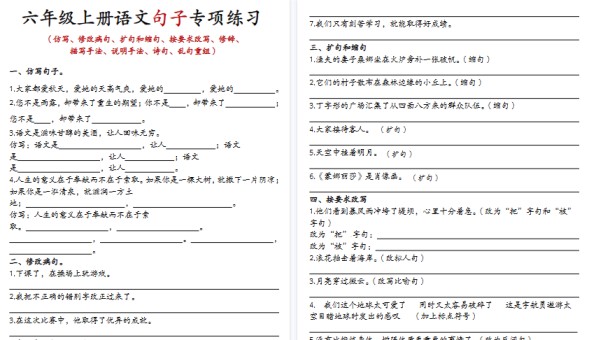 六年级上册语文句子专项练习
（仿写、修改病句、扩句和缩句、按要求改写、修辞、
描写手法、说明手法、诗句、乱句重组）
一、仿写句子。
1.大家都爱秋天，爱她的天高气爽，爱她的________，爱她的________。
2.您不是雨露，却带来了重生的期望；你不是____，却带来了________；
您不是____，却带来了________。
3.语文是滋味甘醇的美酒，让人回味无穷。
仿写：语文是________，让人________；语文
是________，让人________；语文
是________，让人________。
4.人生的意义在于奉献而不在于索取。如果你是一棵大树，就撒下一片阴凉；
如果你是一泓清泉，就滋润一方土
地；________，________。
仿写：人生的意义在于奉献而不在于索
取。________，________。
________，________，________。
二、修改病句。
1.下课了，在操场上玩游戏。
2.我把不正确的错别字改正过来了。
3.在这次比赛中，他取得了优异的成就。
7.我们只有刻苦学习，就能取得好成绩。
三、扩句和缩句
1.渔夫的妻子桑娜坐在火炉旁补一张破帆。（缩句）
2.它们的村子散布在森林边缘的小丘上。（缩句）
3.丁字形的广场汇集了从四面八方来的群众队伍。（缩句）
4.大家接待客人。（扩句）
5.天空中挂着明月。（扩句）
6.《蒙娜丽莎》是肖像画。（扩句）
四、按要求改写
1.他们看到暴风雨冲垮了堤坝，心里十分着急。（改为“把”字句和“被”
字句）
改为“把”字句：________
改为“被”字句：________
2.浪花拍击着海岸。（改拟人句）
3.月亮穿过微云。（改写比喻句）
4. 我们这个地球太可爱了 同时又太容易破碎了 这是宇航员遨游太
空目睹地球时发出的感叹 （加上标点符号）